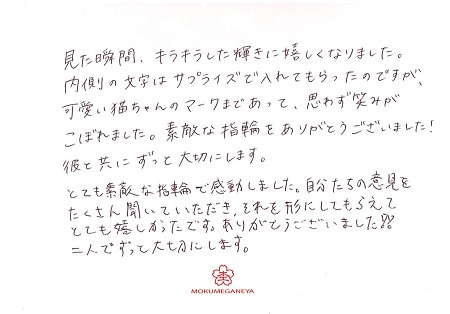 見た瞬間、キラキラした輝きに嬉しくなりました。
内側の文字はサプライズで入れてもらったのですが、
可愛い猫ちゃんのマークまであって、思わず笑みが
こぼれました。素敵な指輪をありがとうございました！
彼と共にずっと大切にします。
とても素敵な指輪で感動しました。自分たちの意見を
たくさん聞いていただき、それを形にしてもらえて
とても嬉しかったです。ありがとうございました!!
二人でずっと大切にします。
MOKUMEGANEYA